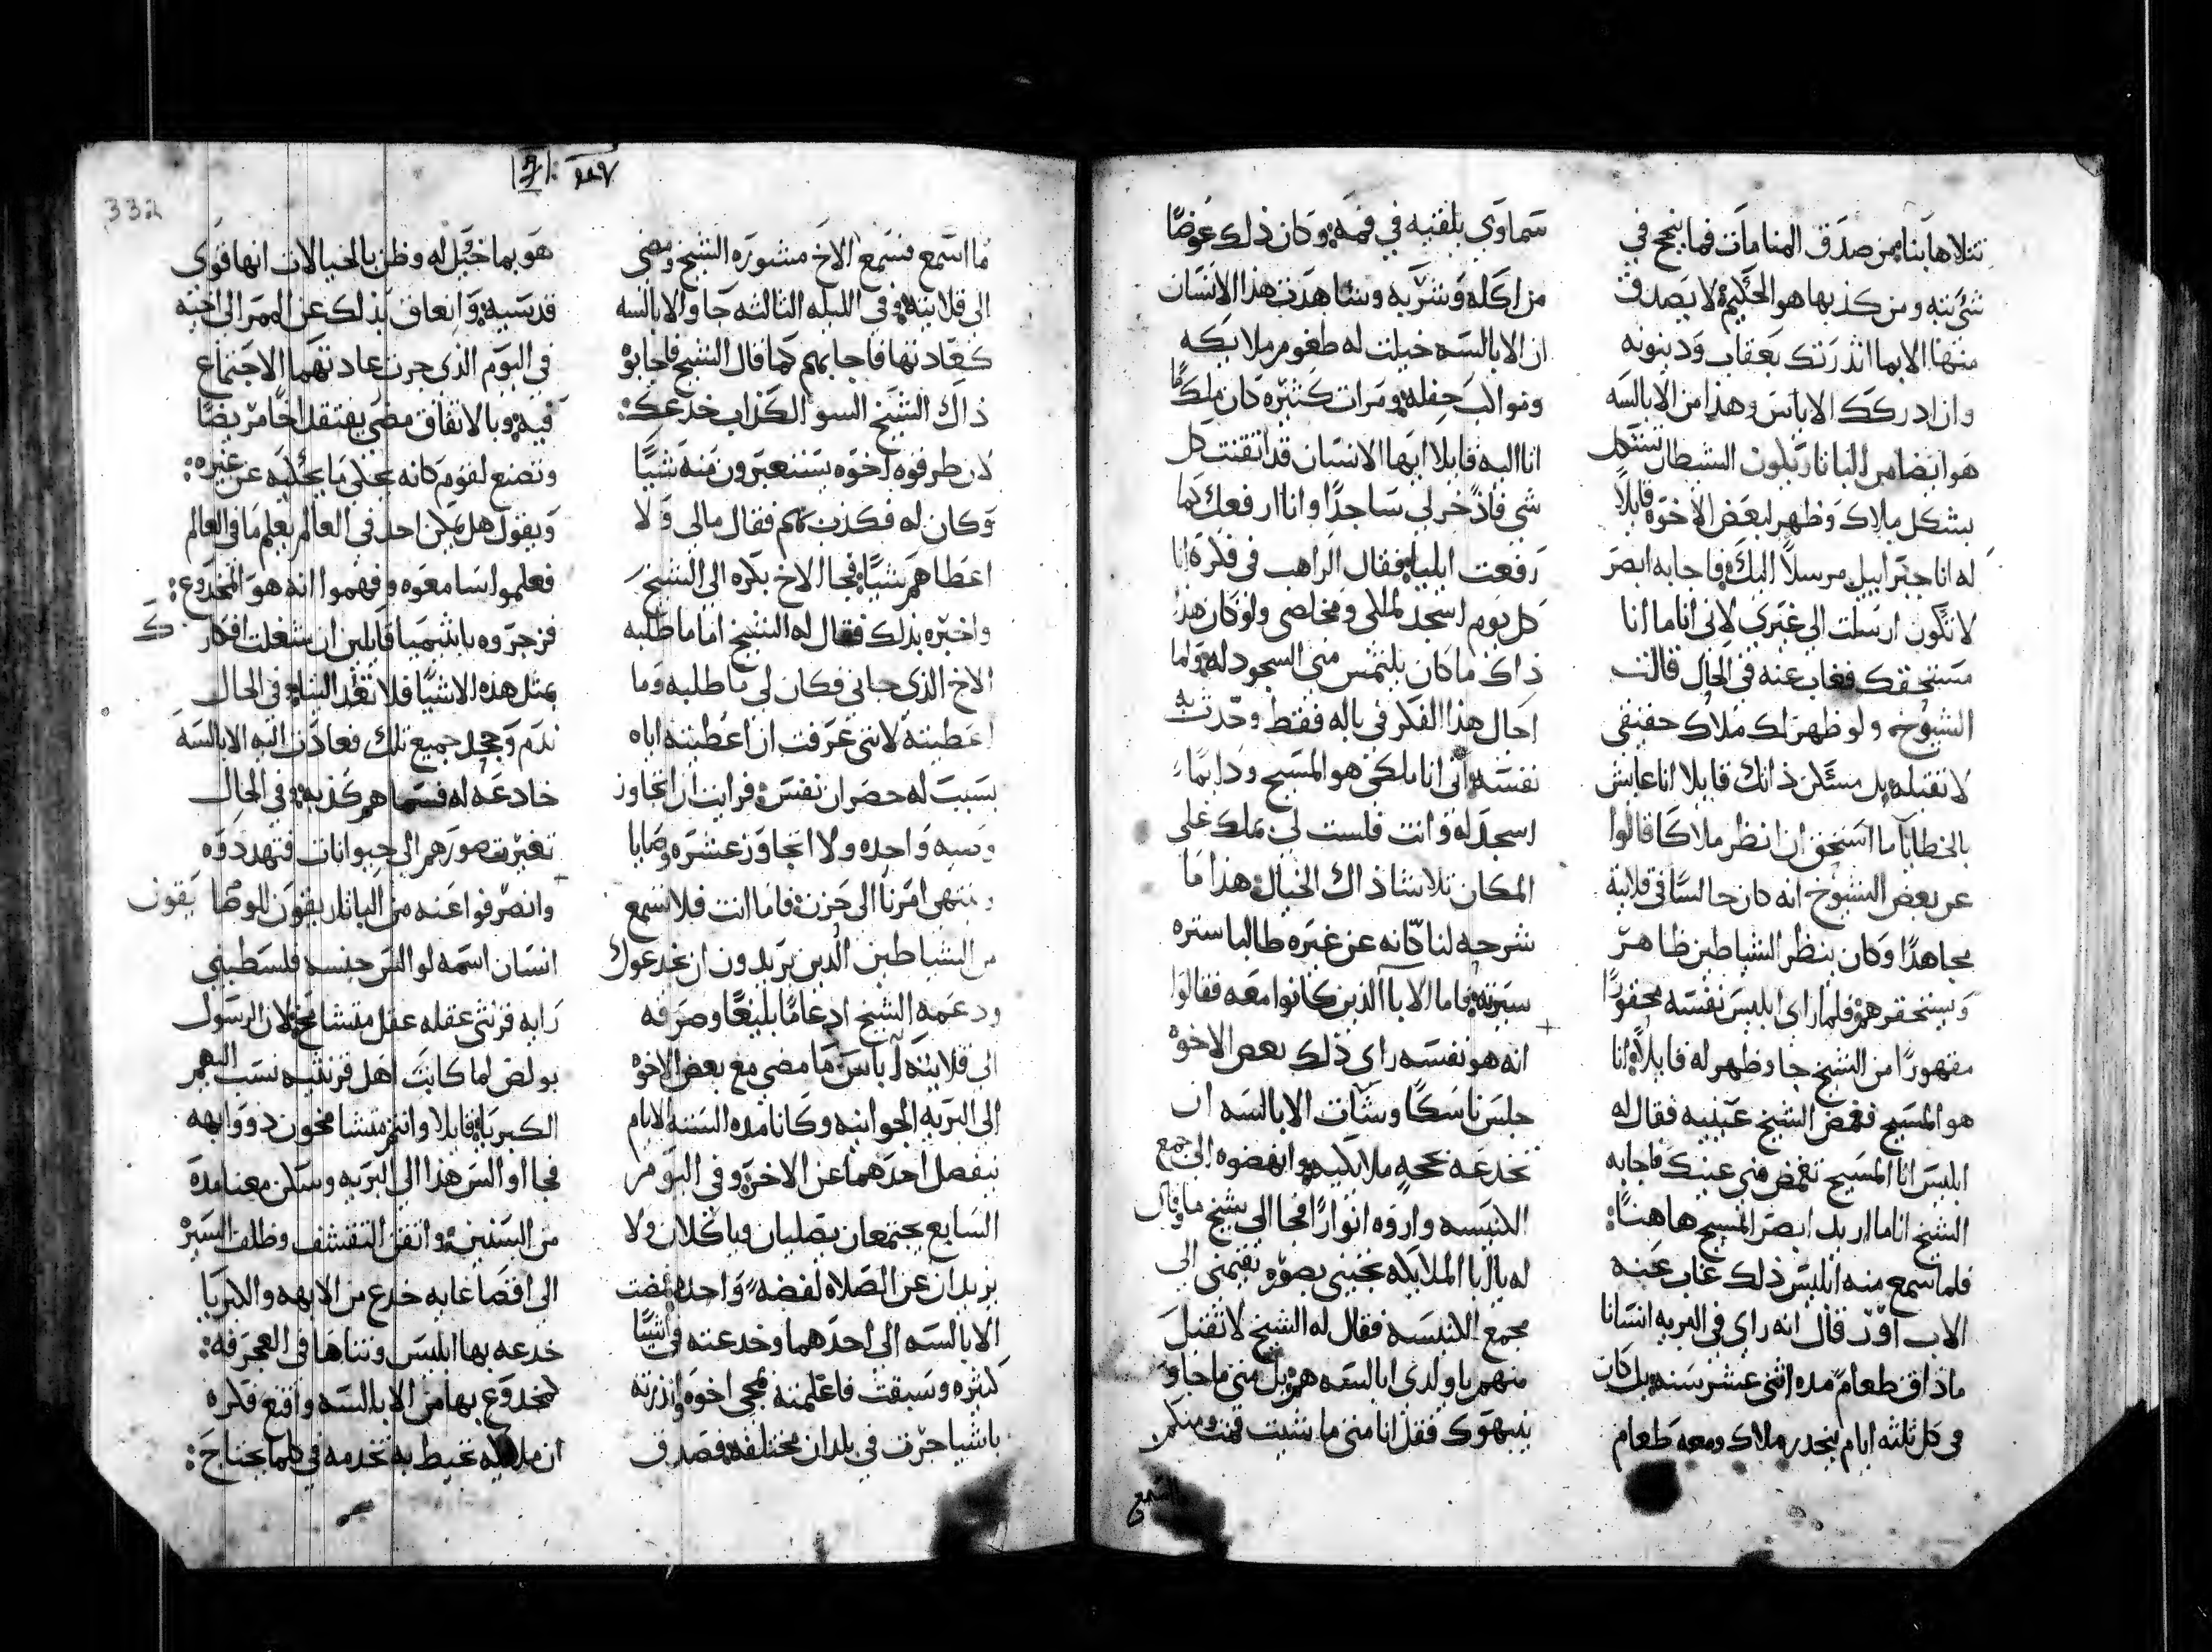 تتلاها بنا من صدق المنامات فما ينجح في
شي بته ومن كذبها هو الحكيم لا يصدق
منها الا بما انذرتك بعقاب ودينونه
وان ادركك الاياس وهذا من الابالسه
هو ايضا من الباناريكون الشيطان تشكل
بشكل ملاك وظهر لبعض الاخوه قايلا
له انا جبراييل مرسلا اليك فاجابه ابصر
لا تكون ارسلت الي غيري لاني انا ما انا
مستحقك فغاب عنه في الحال قالت
الشيوخ ولو ظهر لك ملاك حقيقي
لا تقبله بل مسكن ذاتك قايلا انا عايش
بالخطايا ما استحق ان انظر ملاكا قالوا
عن بعض الشيوخ انه كان جالسا في قلايته
مجاهدا وكان ينظر الشياطين ظاهر
ويستحقرهم فلما راى ابليس نفسه محقورا
مقهورا من الشيخ جا وظهر له قايلا انا
هو المسيح فغمض الشيخ عينيه فقال له
ابليس انا المسيح تغمض مني عينيك فاجابه
الشيخ انا ما اريد ابصر المسيح هاهنا:
فلما سمع منه ابليس ذلك غاب عنه
الاب اور قال انه راى في البريه انسانا
ما ذاق طعام مده اثني عشر سنه بل كان
في كل ثلثه ايام ينحدر ملاك ومعه طعام
سماوي يلقيه في فمه وكان ذلك عوضا
من اكله وشربه وشاهدت هذا الانسان
ان الابالسه خيلت له طغوم ملايكه
ومواكب حفله ومرات كثيره كان ملكا
انا اليه قايلا ايها الانسان قد اتقنت كل
شي فاذ خر لي ساجدا وانا ارفعك كما
رفعت ايليا فقال الراهب في فكره انا
كل يوم اسجد لملكي ومخلصي ولو كان هذا
ذاك ما كان يلتمس مني السجود له ولما
احال هذا الفكر في باله فقط وحدث به
نفسه اني انا ملكي هو المسيح ودايما
اسجد له وانت فلست لي بملك على
المكان تلاشا ذاك الخيال هذا ما
شرحه لنا كانه عن غيره طالبا ستره
سيرته فاما الابا الذين كانوا معه فقالوا
انه هو نفسه راى ذلك بعض الاخوه
جلس ناسكا وشات الابالسه ان
تخدعه بحجه ملايكيه وانهضوه الى جمع
الكنيسه واروه انوارا فجا الي شيخ ما وقال
له يا ابا الملايكه تجيني بضوء تقيمني الى
مجمع الكنيسه فقال له الشيخ لا تقبل
منهم يا ولدي ابالسه هم بل متى ما جاو
ينبهوك فقل انا متى ما شيت قمت ومنكم
ما اسمع
ما اسمع فسمع الاخ مشوره الشيخ ومضى
الى قلايته وفي الليله الثالثه جاوا الابالسه
كعادتها فاجابهم كما قال الشيخ فاجابوه
ذاك الشيخ السو الكذاب خدعك:
لان طرقوه اخوه يستعيرون منه شيا
وكان له فكذبهم فقال ما لي ولا
اعطاهم شيا فجا الاخ بكره الى الشيخ
واخبره بذلك فقال له الشيخ اما ما طلبه
الاخ الذي جاني فكان لي ما طلبه وما
اعطيته لانني عرفت ان اعطيته اياه
بسبب له حصران نفس فرايت ان اتجاوز
وصيه واحده ولا اتجاوز عشره وصايا
وينتهي امرنا الى حزن فاما انت فلا تسمع
من الشياطين الذين يريدون ان يخدعوك
ودعمه الشيخ ادعاما بليغا وصرفه
الى قلايته اباس ما مضى مع بعض الاخوه
الى البريه الجوانيه وكانا مده السته الايام
ينفصل احدهما عن الاخر وفي اليوم
السابع يجتمعان يصليان وياكلان ولا
يزيدان عن الصلاه لفضه واحده فمضت
الابالسه الى احدهما وخدعته في اشيا
كثيره وسبقت فاعلمته بمجي اخوه وانذرته
باشيا جرت في بلدان مختلفه فصدق
هو بما خيل له وظن بالخيالات انها قوى
قدسيه وانعاق بذلك عن الممر الى اخيه
في اليوم الذي جرت عادتهما الاجتماع
فيه وبالاتفاق مضى يفتقد اخا مريضا
وتصنع لقوم كانه يحكي ما يحكيه عن غيره:
ويقول هل يمكن احد في العالم يعلم ما في العالم
فعلموا سامعوه وفهموا انه هو المخدوع:
فزجروه باشيميا قايلين ان شغلت افكارك
بمثل هذه الاشيا فلا تعد الينا وفي الحال
ندم وجحد جميع تلك فعادت اليه الابالسه
خادعه له فسماهم كذبه وفي الحال
تغيرت صورهم الى حيوانات فتهددوه
وانصرفوا عنه من الباناريقون للوصا
انسان اسمه لوالس جنسه فلسطيني
رايه قرنثي عقله عقل متشامخ لان الرسول
بولص لما كاتب اهل قرنثيه نسب اليهم
الكبريا قايلا وانتم متشامخون ذووا ابهه
فجا اوالس هذا الى البريه وسكن معنا مده
من السنين واتقن التقشف وظلف السيره
الى اقصا غايه خدع من الابهه والكبريا
خدعه بها ابليس وتناها في العجرفه:
المخدوع بها من الابالسه واقنع فكره
ان ملايكه تحيط به تخدمه في كلما يحتاج:
332